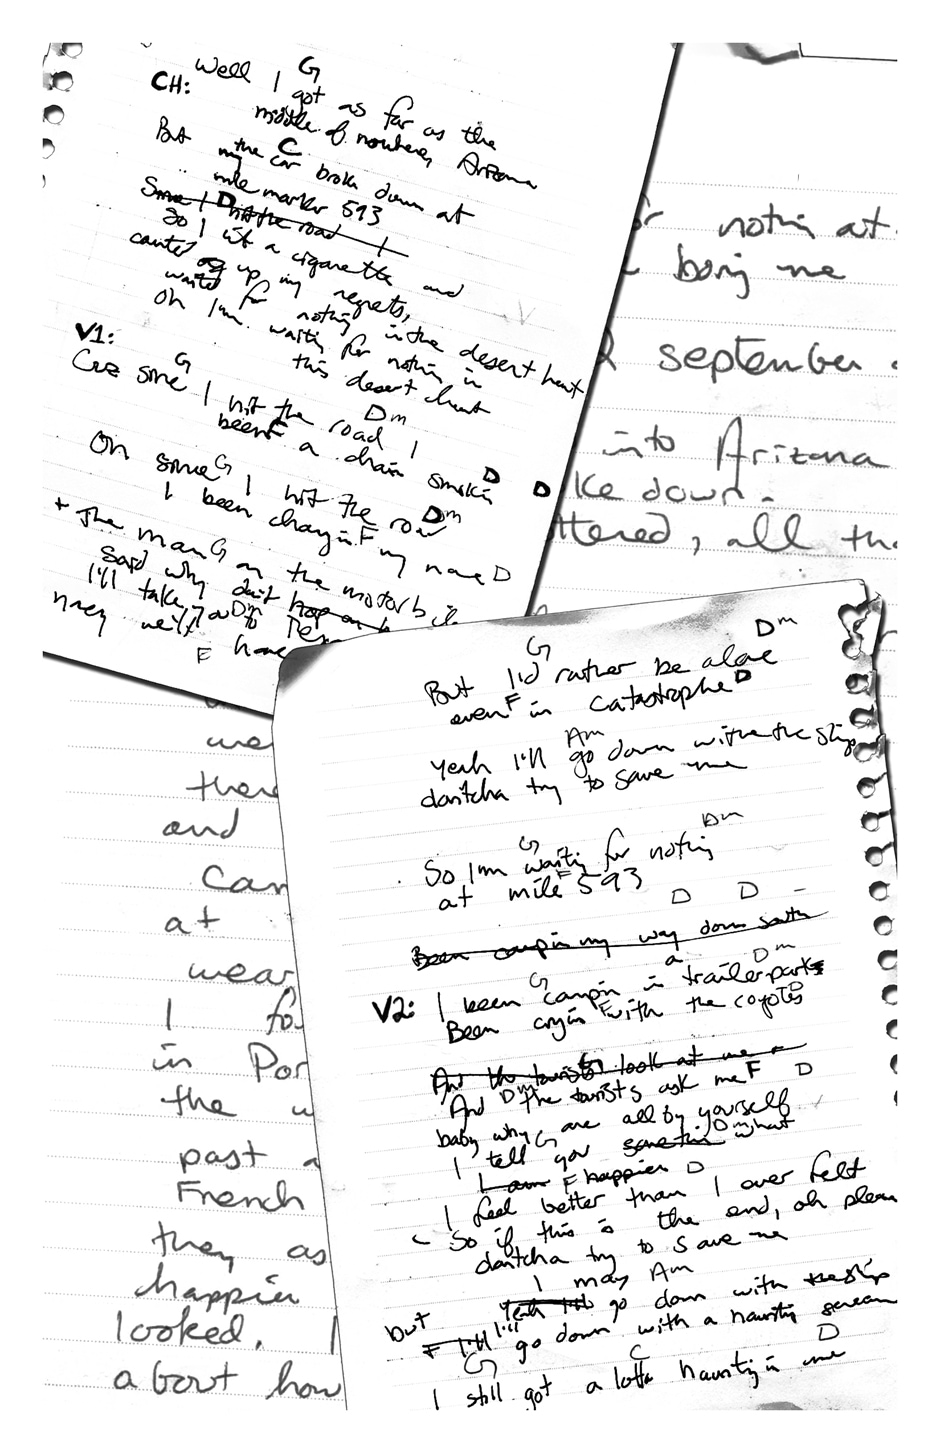 Well I G got as far as the
CH:
middle of nowhere, Arizona
But the C
my car broke down at
mile marker 593
Since I D hit the road I
So I lit a cigarette and
counted up my regrets,
waited for nothin in the desert heat
Oh I'm waitin for nothin in
this desert heat
V1:
G
Cuz since I hit the road I
Dm
been F a chain smokin D D
Oh since G I hit the road
Dm
I been changin F my name D
+ The man G on the motorb
said why don't hop on
I'll take you Dm to
F have
G Dm
But I'd rather be alone
even F in catastrophe D
Am
Yeah I'll go down with the ship
dontcha try to save me
G Dm
So I'm waitin for nothin
at mile F 593
D D -
Been campin my way down south
a
G Dm
V2: I been campin in trailerparks
Been cryin F with the coyotes D
And the tourists look at me
G
And Dm the tourists ask me F D
baby why are all by yourself
G Dm
I tell you somethin what
I am F happier D
I feel better than I ever felt
So if this is the end, oh please
dontcha try to save me
I may Am
but Yeah I'll go down with the ship
F I'll I'll go down with a haunting scream
G C D
I still got a lotta haunting in me
for nothin at
bring me
2 september
into Arizona
ke down.
ttered, all th
we
there
and
Can
at
wear
I fo
in Por
the w
past a
French
they as
happier
looked. I
about how